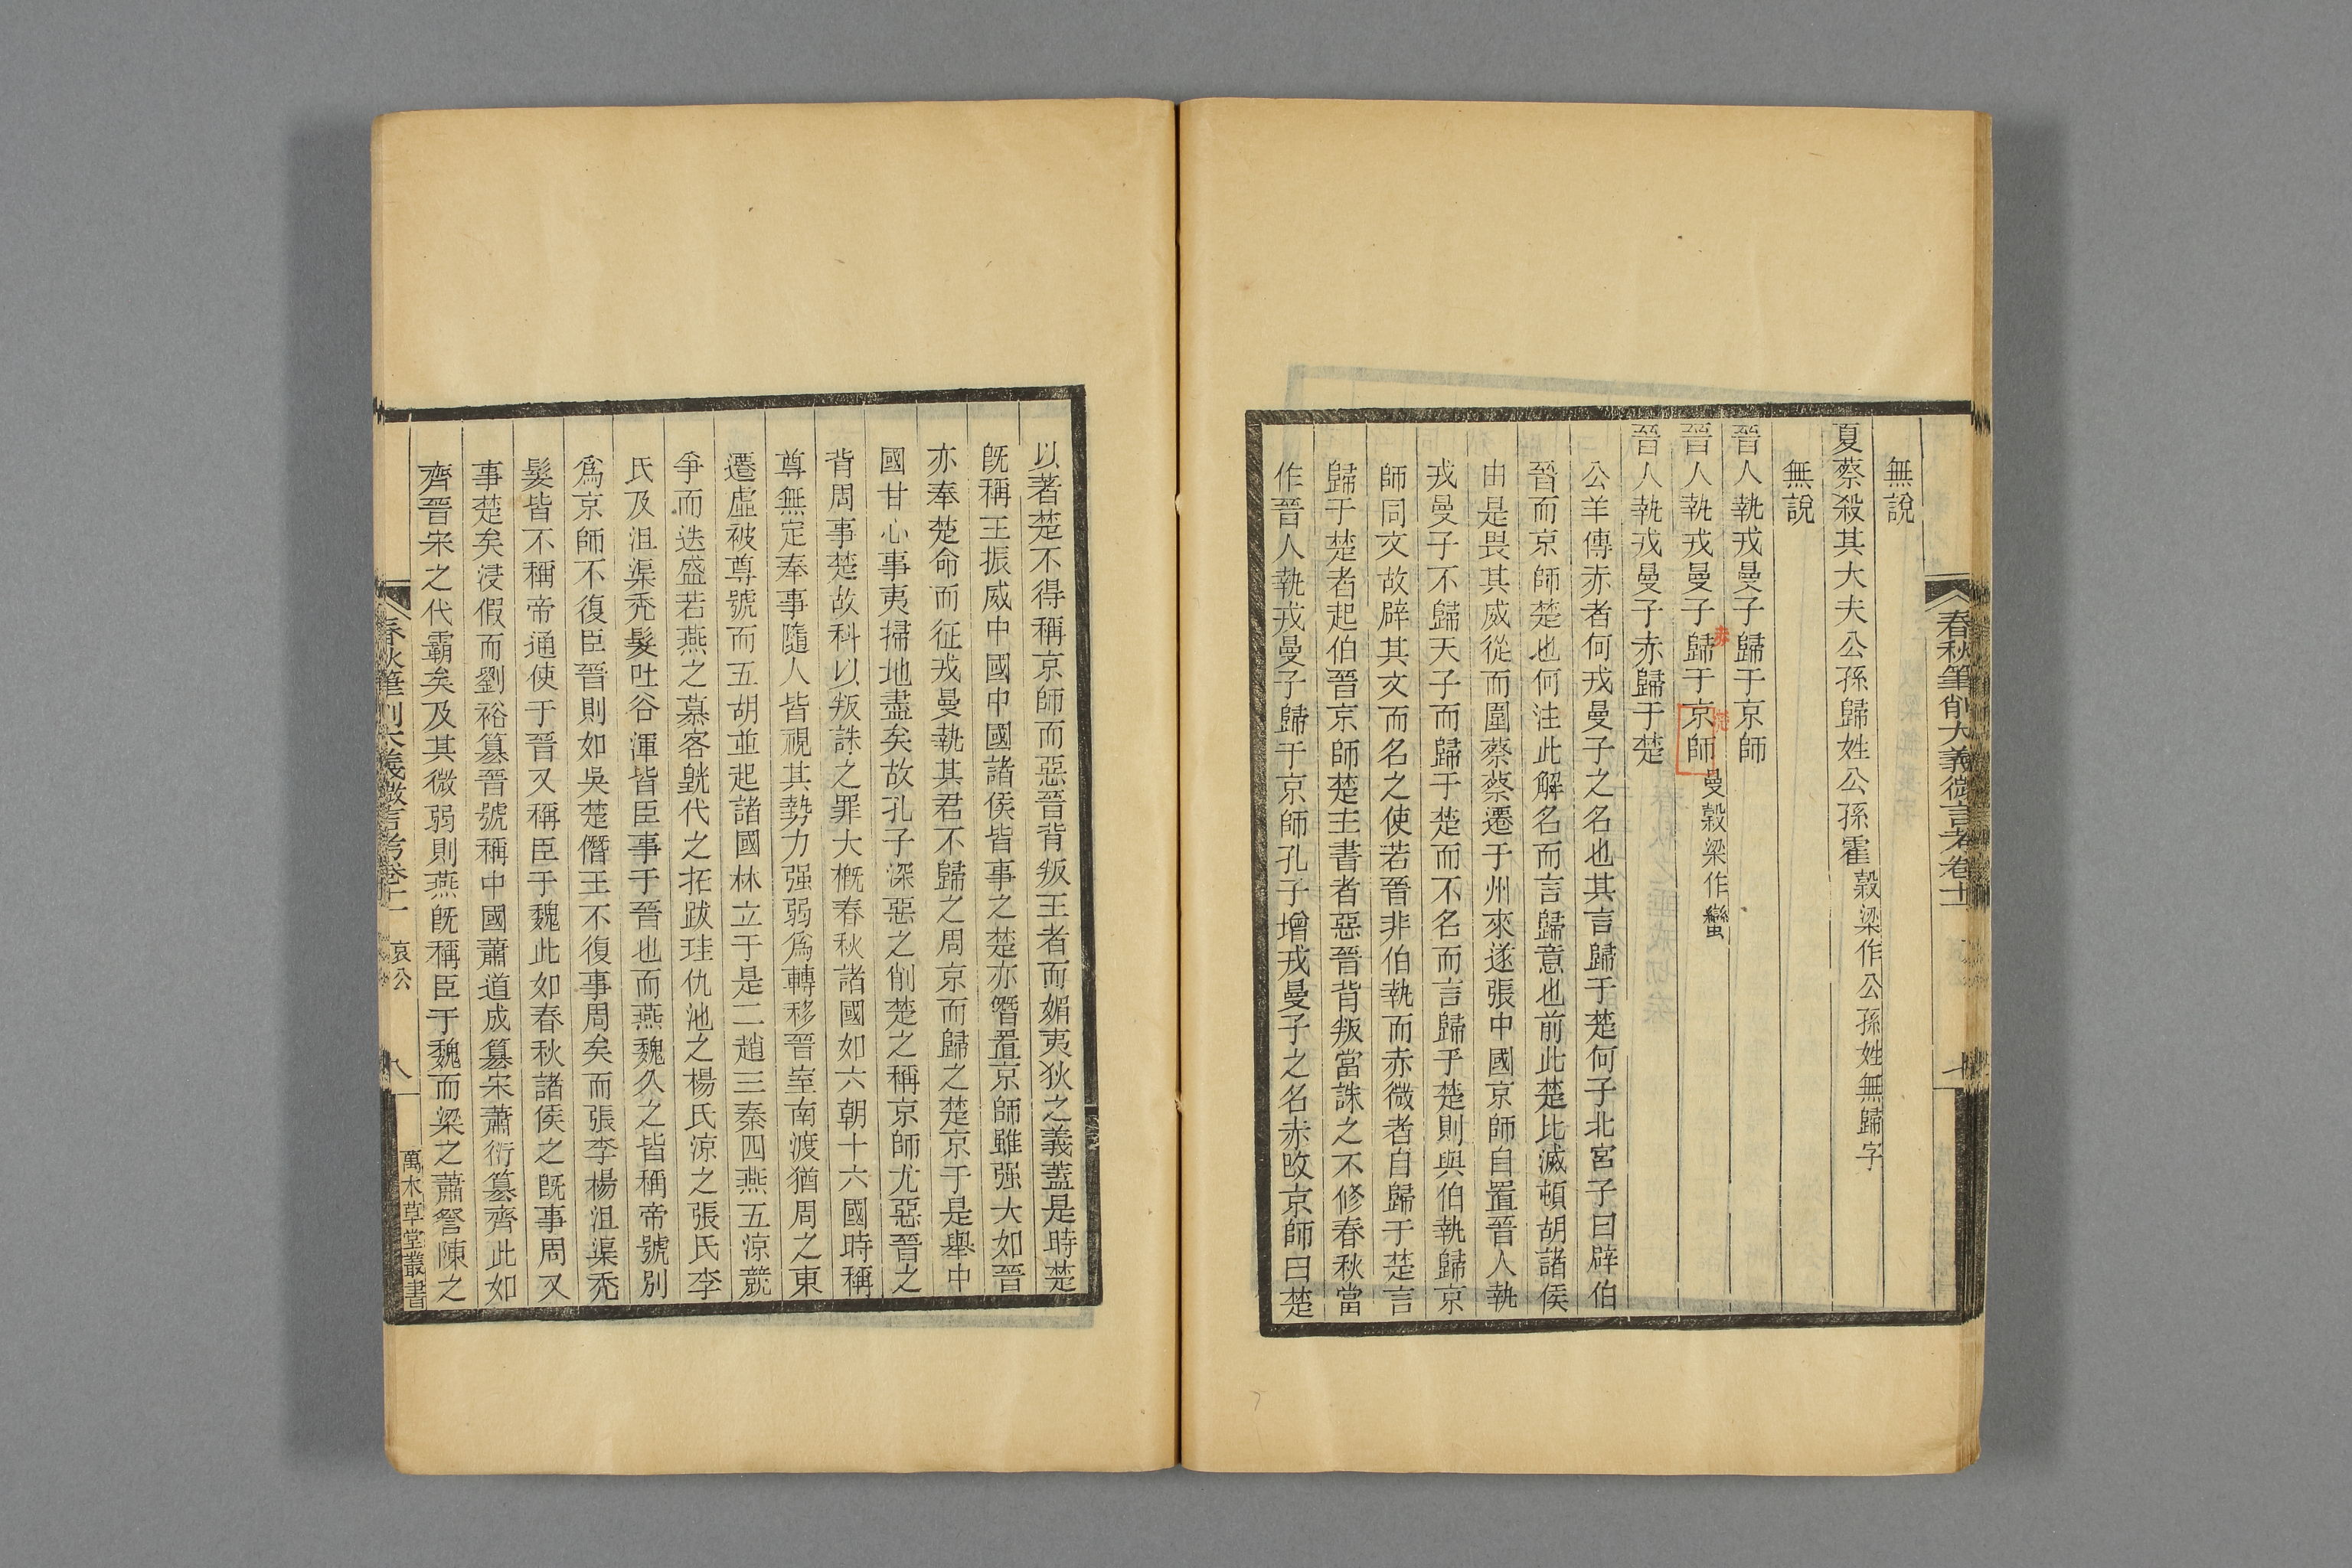 春秋筆削大義微言考卷十一
無說
夏蔡殺其大夫公孫歸姓公孫霍穀梁作公孫姓無歸字
無說
晉人執戎曼子歸于京師
晉人執戎曼子歸于京師曼穀梁作蠻
赤
楚
晉人執戎曼子赤歸于楚
公羊傳赤者何戎曼子之名也其言歸于楚何子北宮子曰辟伯
晉而京師楚也何注此解名而言歸意也前此楚比滅頓胡諸侯
由是畏其威從而圍蔡蔡遷于州來遂張中國京師自置晉人執
戎曼子不歸天子而歸于楚而不名而言歸乎楚則與伯執歸京
師同文故辟其文而名之使若晉非伯執而赤微者自歸于楚言
歸于楚者起伯晉京師楚主書者惡晉背叛當誅之不修春秋當
作晉人執戎曼子歸于京師孔子增戎曼子之名赤改京師曰楚
以著楚不得稱京師而惡晉背叛王者而媚夷狄之義蓋是時楚
既稱王振威中國中國諸侯皆事之楚亦僭置京師雖强大如晉
亦奉楚命而征戎曼執其君不歸之周京而歸之楚京于是舉中
國甘心事夷掃地盡矣故孔子深惡之削楚之稱京師尤惡晉之
背周事楚故科以叛誅之罪大概春秋諸國如六朝十六國時稱
尊無定奉事隨人皆視其勢力强弱爲轉移晉室南渡猶周之東
遷虛被尊號而五胡並起諸國林立于是二趙三秦四燕五涼競
爭而迭盛若燕之慕客皝代之拓跋珪仇池之楊氏涼之張氏李
氏及沮渠秃髮吐谷渾皆臣事于晉也而燕魏久之皆稱帝號別
爲京師不復臣晉則如吳楚僭王不復事周矣而張李楊沮渠秃
髮皆不稱帝通使于晉又稱臣于魏此如春秋諸侯之既事周又
事楚矣浸假而劉裕篡晉號稱中國蕭道成篡宋蕭衍篡齊此如
齊晉宋之代霸矣及其微弱則燕既稱臣于魏而梁之蕭詧陳之
春秋筆削大義微言考卷十一 哀公 八 萬木草堂叢書